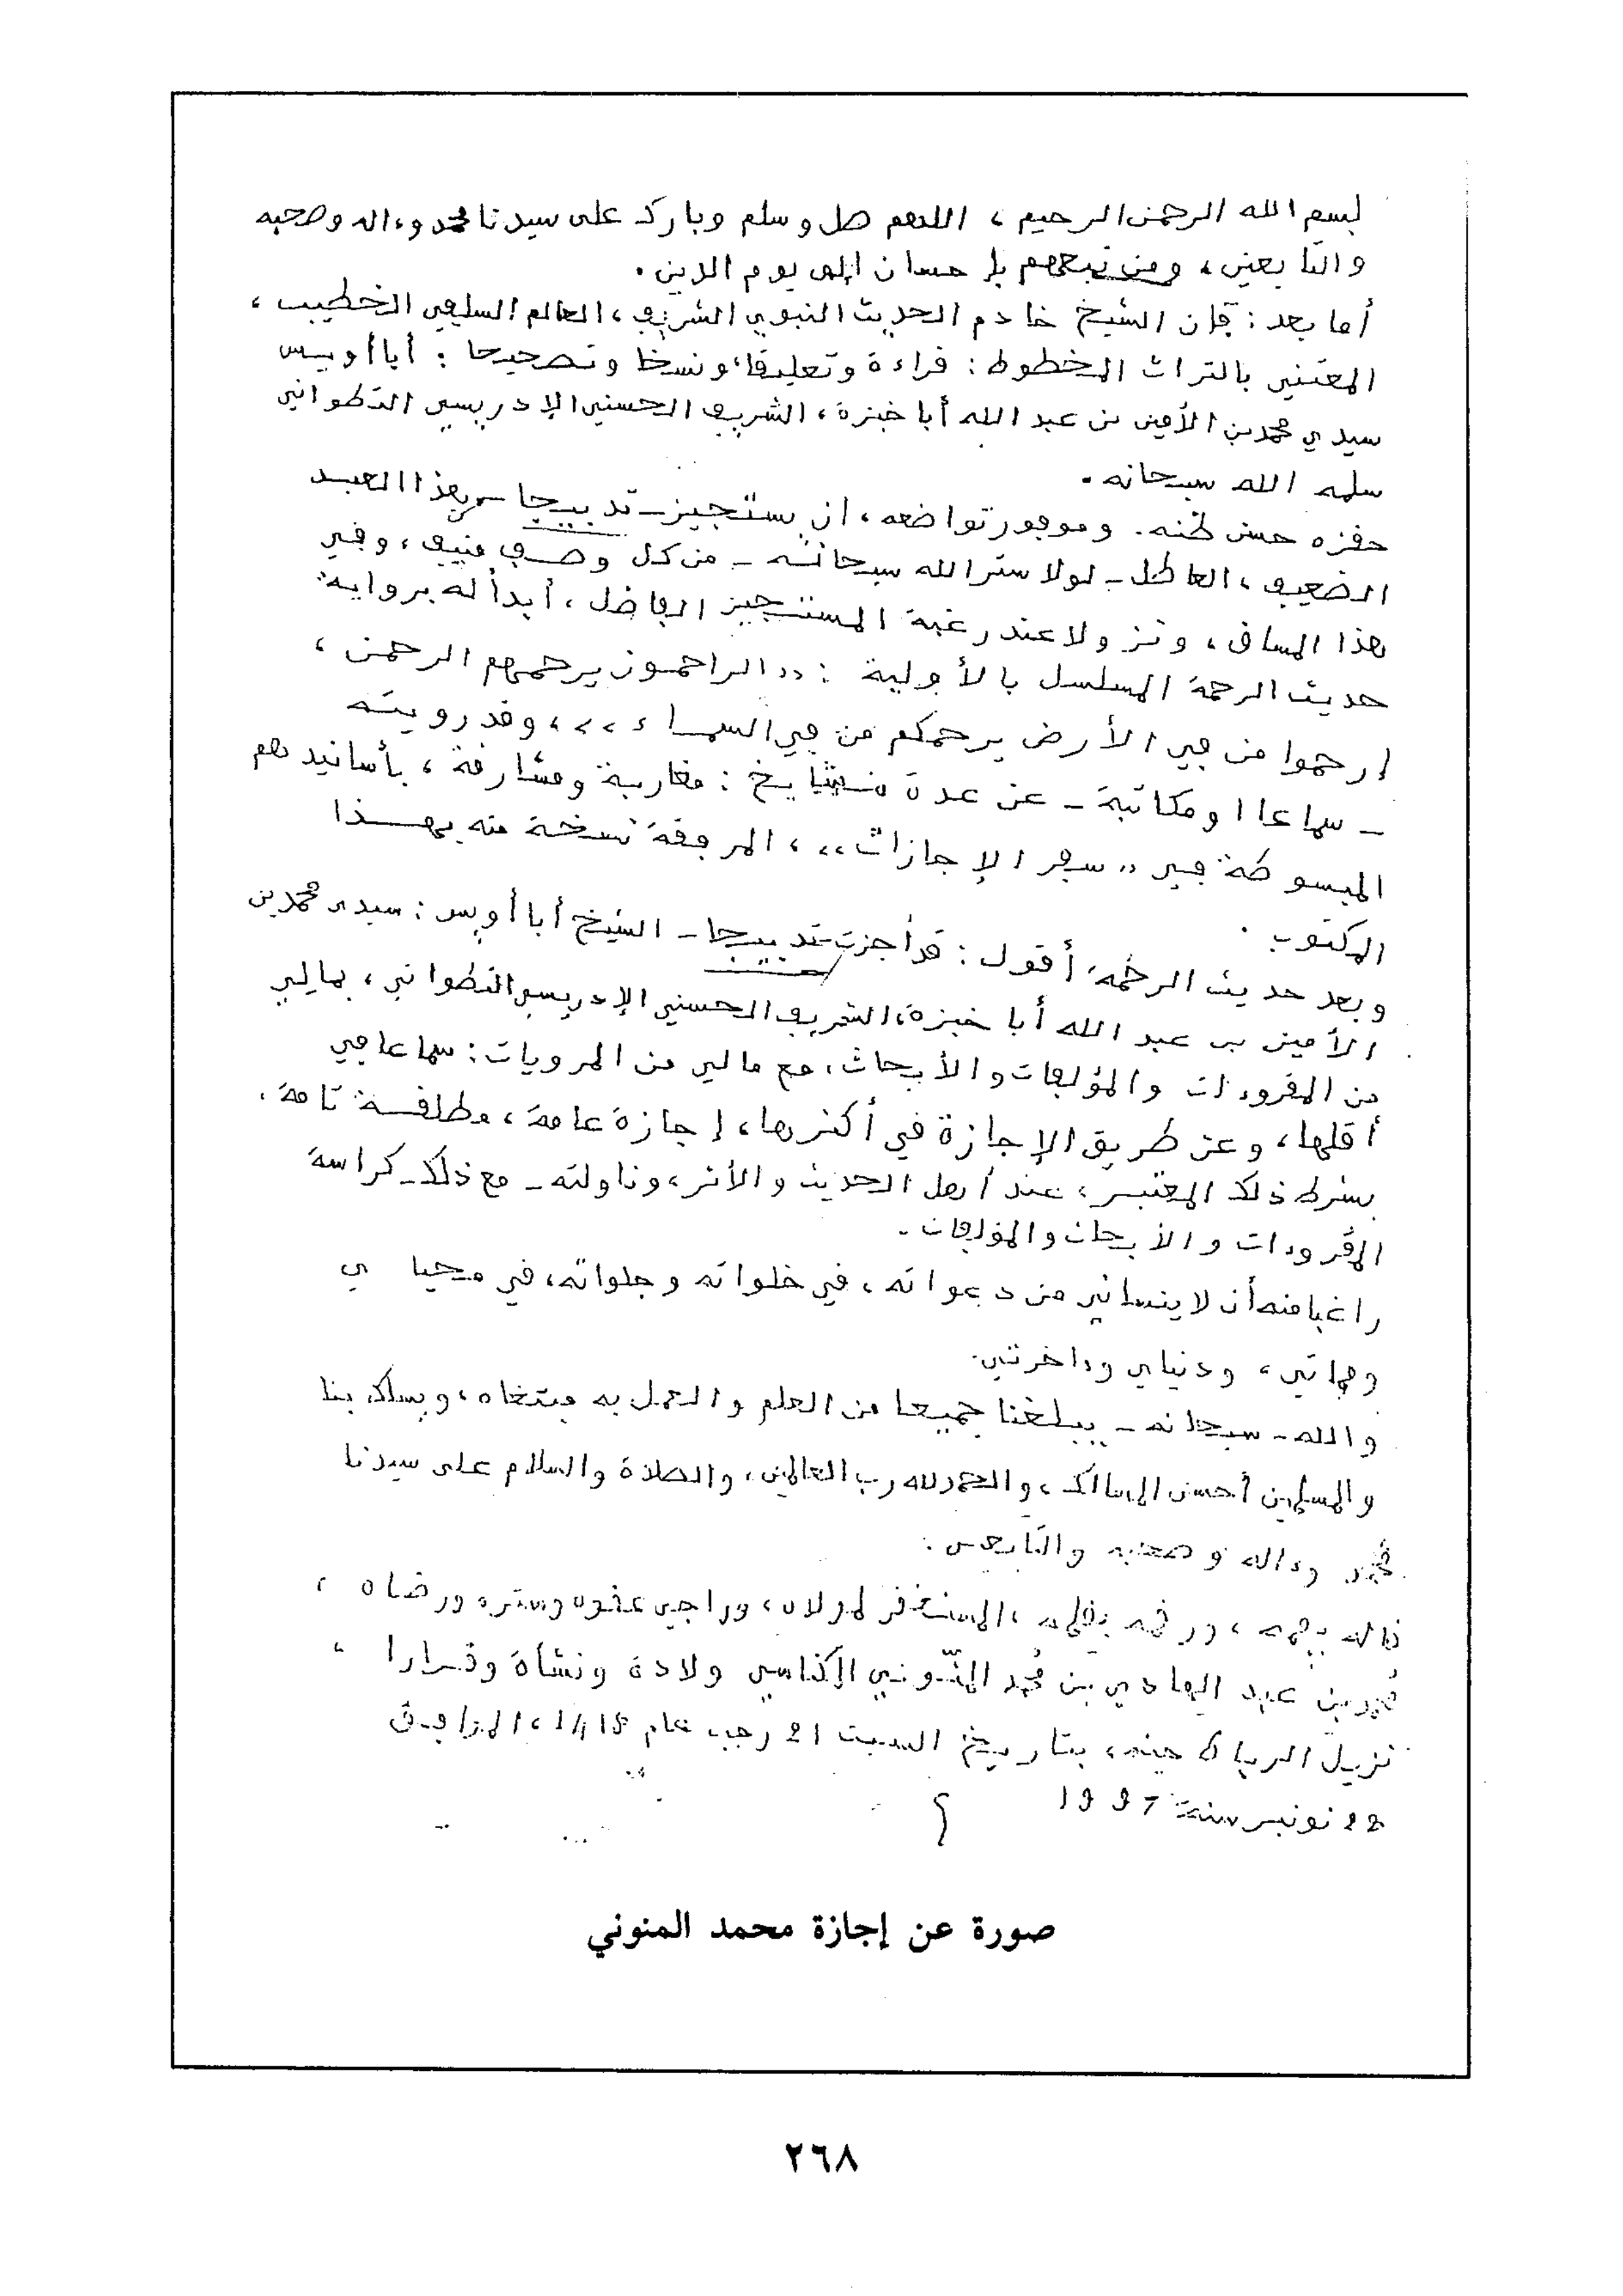 بسم الله الرحمن الرحيم، اللهم صل وسلم وبارك على سيدنا محمد وءاله وصحبه
والتابعين، ومن تبعهم بإحسان إلى يوم الدين.
أما بعد: فإن الشيخ خادم الحديث النبوي الشريف، العالم السلفي الخطيب،
المعتني بالتراث المخطوط: قراءة وتعليقا، ونسخا وتصحيحا: أبا أويس
سيدي محمد بن الأمين بن عبد الله أبا خبزة، الشريف الحسني الإدريسي التطواني
سلمه الله سبحانه.
حفزه حسن ظنه. وموفور تواضعه، ان يستجيز - تدبيجا - بهذا العبد
الضعيف، العاطل - لولا ستر الله سبحانه - من كل وصف منيف، وفي
هذا المساق، ونزولا عند رغبة المستجيز الفاضل، أبدأ له برواية
حديث الرحمة المسلسل بالأولية: ,,الراحمون يرحمهم الرحمن،
ارحموا من في الأرض يرحمكم من في السماء,,، وقد رويته
- سماعا او مكاتبة - عن عدة مشايخ: مغاربة ومشارقة، بأسانيدهم
المبسوطة في ,,سفر الإجازات,,، المرفقة نسخة منه بهذا
المكتوب.
وبعد حديث الرحمة، أقول: قد أجزت - تدبيجا - الشيخ أبا أويس: سيدي محمد بن
الأمين بن عبد الله أبا خبزة، الشريف الحسني الإدريسي التطواني، بما لي
من المقروءات والمؤلفات والأبحاث، مع مالي من المرويات: سماعا في
أقلها، وعن طريق الإجازة في أكثرها، إجازة عامة، مطلقة تامة.
بشرط ذلك المعتبر، عند أهل الحديث والأثر، وناولته - مع ذلك - كراسة
المقروءات والأبحاث والمؤلفات.
راغبا منه أن لا ينساني من دعواته، في خلواته وجلواته، في محياي
ومماتي، ودنياي وءاخرتي.
والله - سبحانه - يبلغنا جميعا من العلم والعمل به مبتغاه، ويسلك بنا
والمسلمين أحسن المسالك، والحمد لله رب العالمين، والصلاة والسلام على سيدنا
محمد وءاله وصحبه والتابعين.
قاله بفمه، ورقمه بقلمه، المستغفر لمولاه، وراجي عفوه وستره ورضاه،
محمد بن عبد الهادي بن محمد المنّوني المكناسي ولادة ونشأة وقرارا،
نزيل الرباط حينه، بتاريخ السبت 21 رجب عام 1418، الموافق
22 نونبر سنة 1997
صورة عن إجازة محمد المنوني
٢٦٨